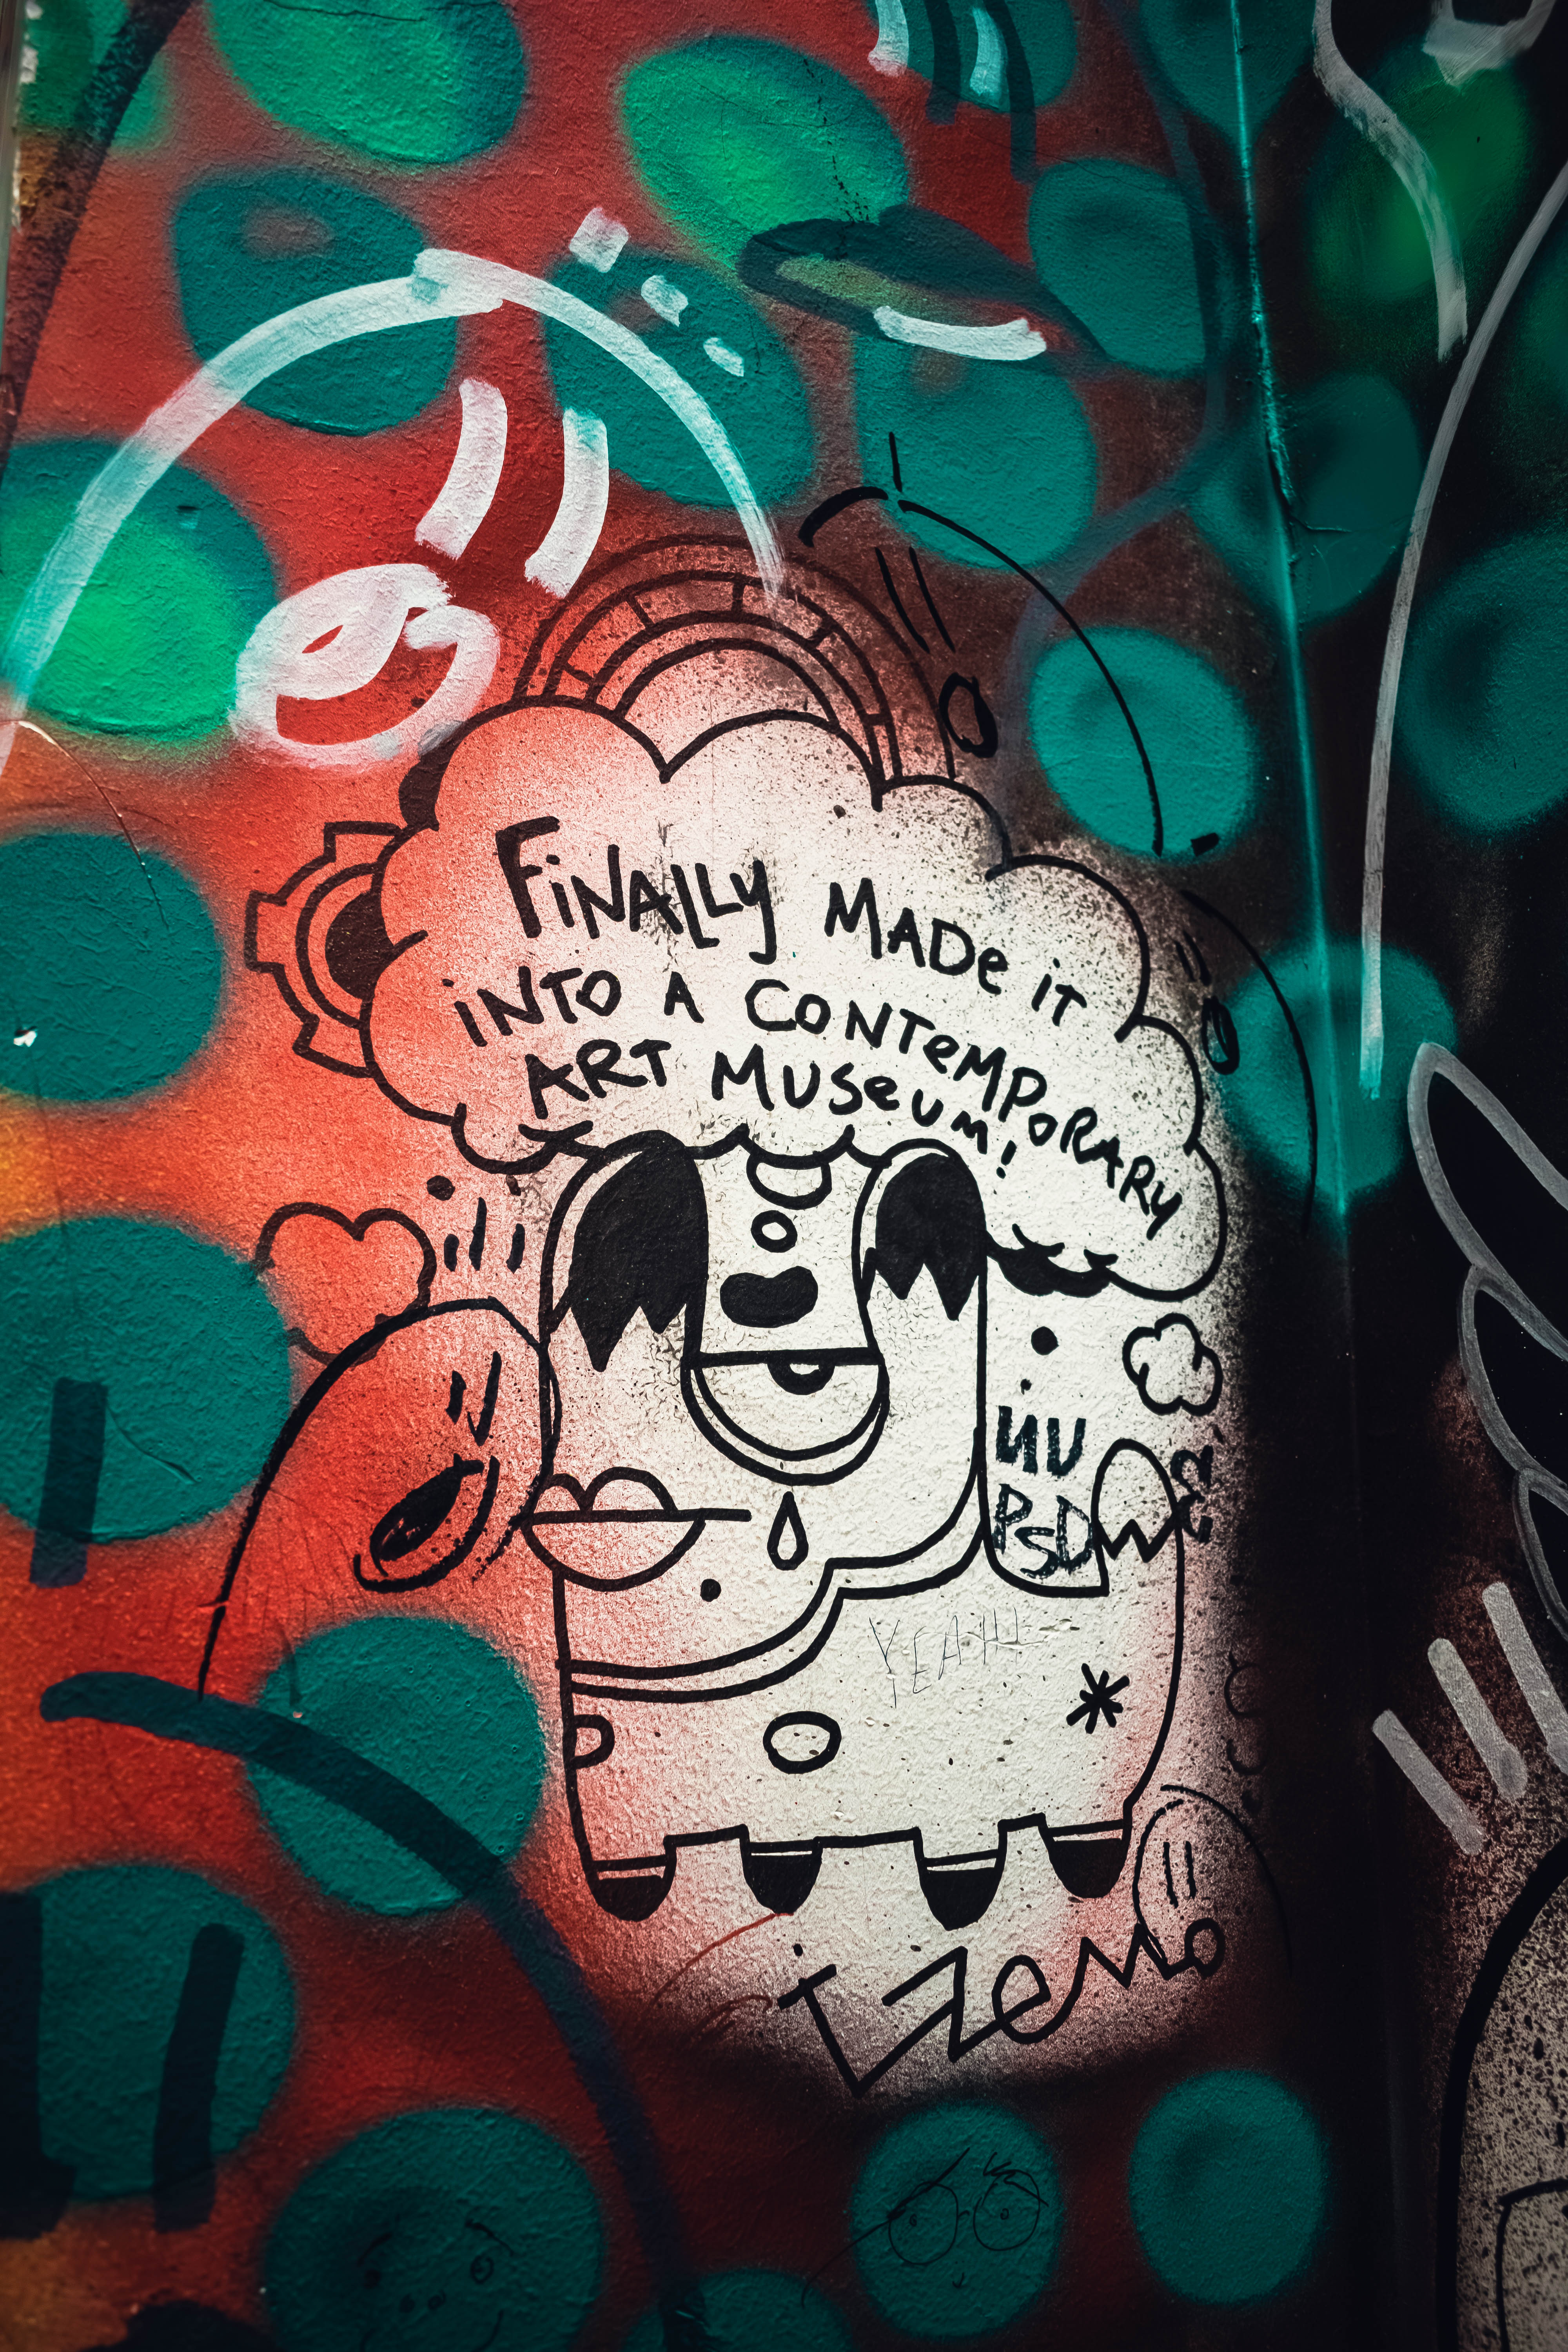 FiNALLY MADe iT
iNTO A CONTeMPORARY
ART MUSeUM!
PSD
YEAH!